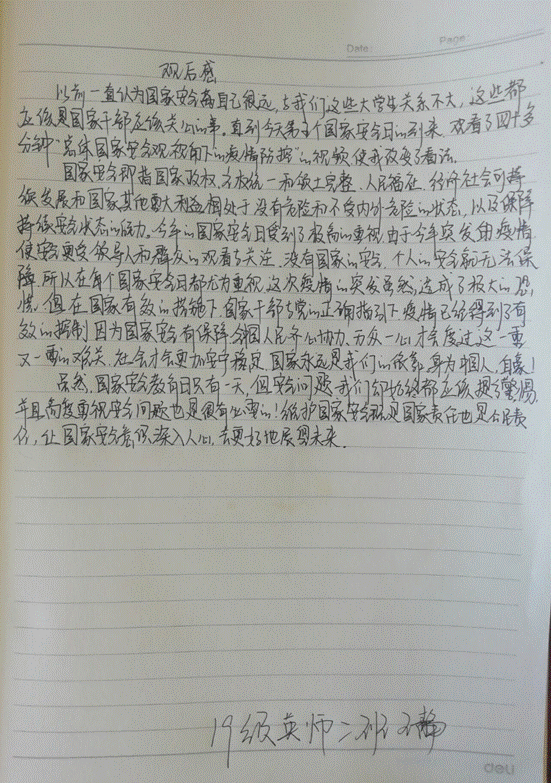 Date:
Page:
观后感
以前一直认为国家安全离自己很远,与我们这些大学生关系不大,这些都
应该是国家干部应该关心的事,直到今天第五个国家安全日的到来,观看了四十多
分钟“总体国家安全观视角下的疫情防控”的视频使我改变了看法。
国家安全即指国家政权、主权统一和领土完整、人民福祉、经济社会可持
续发展和国家其他重大利益相对处于没有危险和不受内外危险的状态,以及保障
持续安全状态的能力。今年的国家安全日受到了极高的重视,由于今年突发的疫情
使安全更受领导人和群众的观看与关注,没有国家的安全,个人的安全就无法保
障,所以在每个国家安全日都尤为重视,这次疫情的突发虽然造成了极大的恐
慌,但在国家有效的措施下,国家干部与党的正确指引下,疫情已经得到了有
效的控制,因为国家安全有保障,全国人民齐心协力,万众一心才会度过这一重
又一重的难关,社会才会更加安宁稳定,国家永远是我们的依靠,身为中国人,自豪!
虽然,国家安全教育日只有一天,但安全问题,我们却始终都应该提高警惕,
并且高度重视安全问题也是很有必要的!维护国家安全既是国家责任也是公民责
任,让国家安全意识深入人心,去更好地展望未来。
19级英师二班 王静
deli